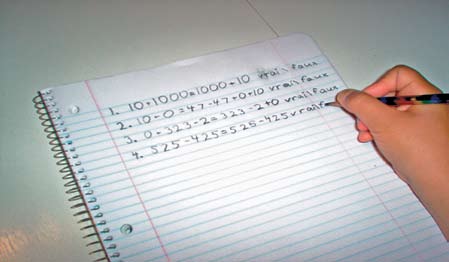 1. 10+1000=1000+10 vrai\faux
2. 10-0=47-47+0+10 vrai\faux
3. 0+323-2=323-2+0 vrai\faux
4. 525-425=525-425 vrai\f